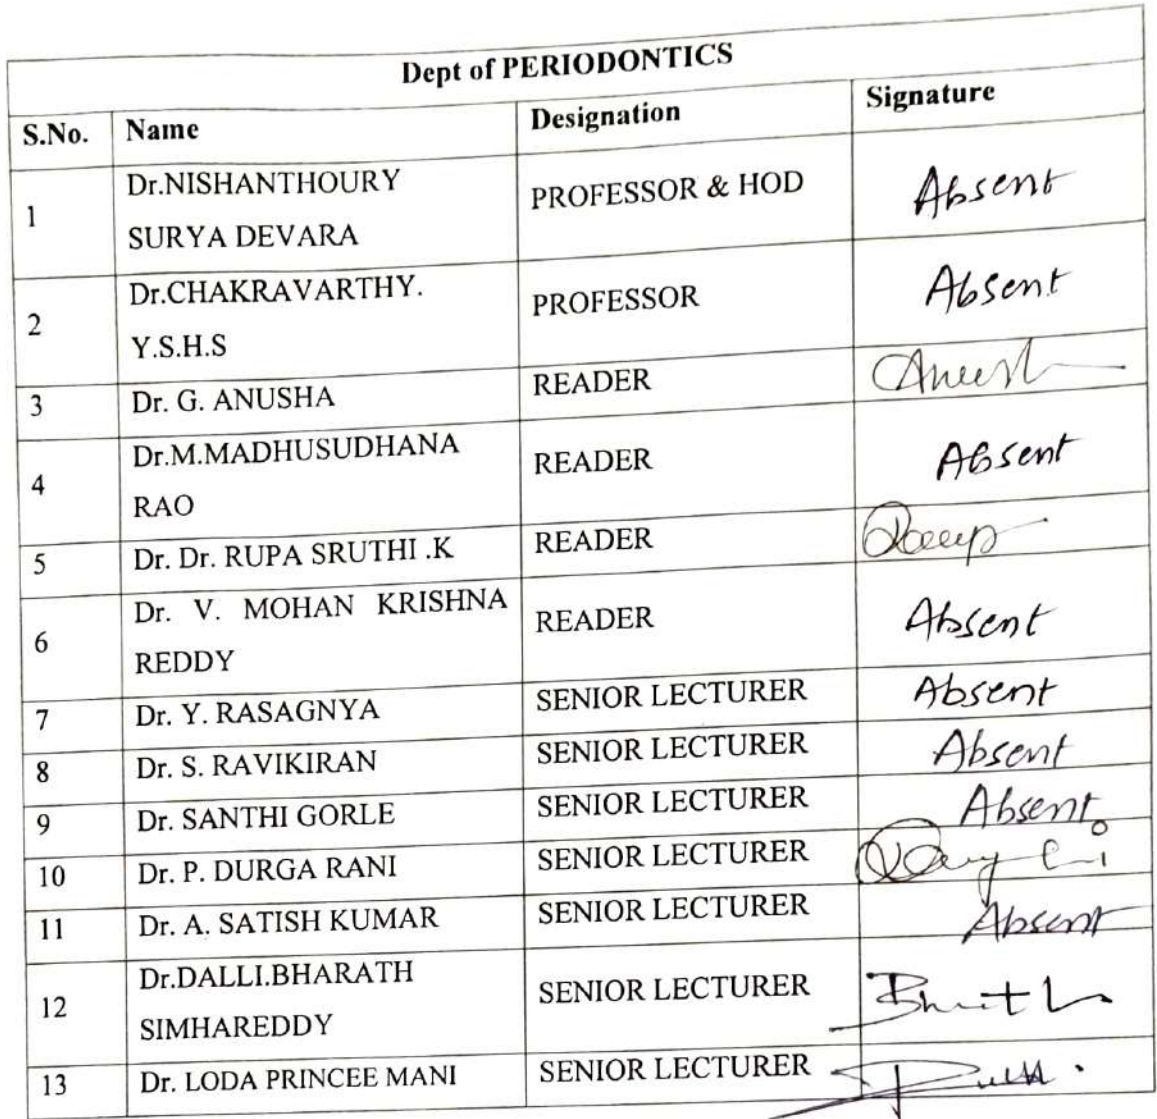 Dept of PERIODONTICS
S.No. Name Designation Signature
1 Dr.NISHANTHOURY SURYA DEVARA PROFESSOR & HOD Absent
2 Dr.CHAKRAVARTHY. Y.S.H.S PROFESSOR Absent
3 Dr. G. ANUSHA READER
4 Dr.M.MADHUSUDHANA RAO READER Absent
5 Dr. Dr. RUPA SRUTHI .K READER
6 Dr. V. MOHAN KRISHNA REDDY READER Absent
7 Dr. Y. RASAGNYA SENIOR LECTURER Absent
8 Dr. S. RAVIKIRAN SENIOR LECTURER Absent
9 Dr. SANTHI GORLE SENIOR LECTURER Absent
10 Dr. P. DURGA RANI SENIOR LECTURER
11 Dr. A. SATISH KUMAR SENIOR LECTURER Absent
12 Dr.DALLI.BHARATH SIMHAREDDY SENIOR LECTURER
13 Dr. LODA PRINCEE MANI SENIOR LECTURER